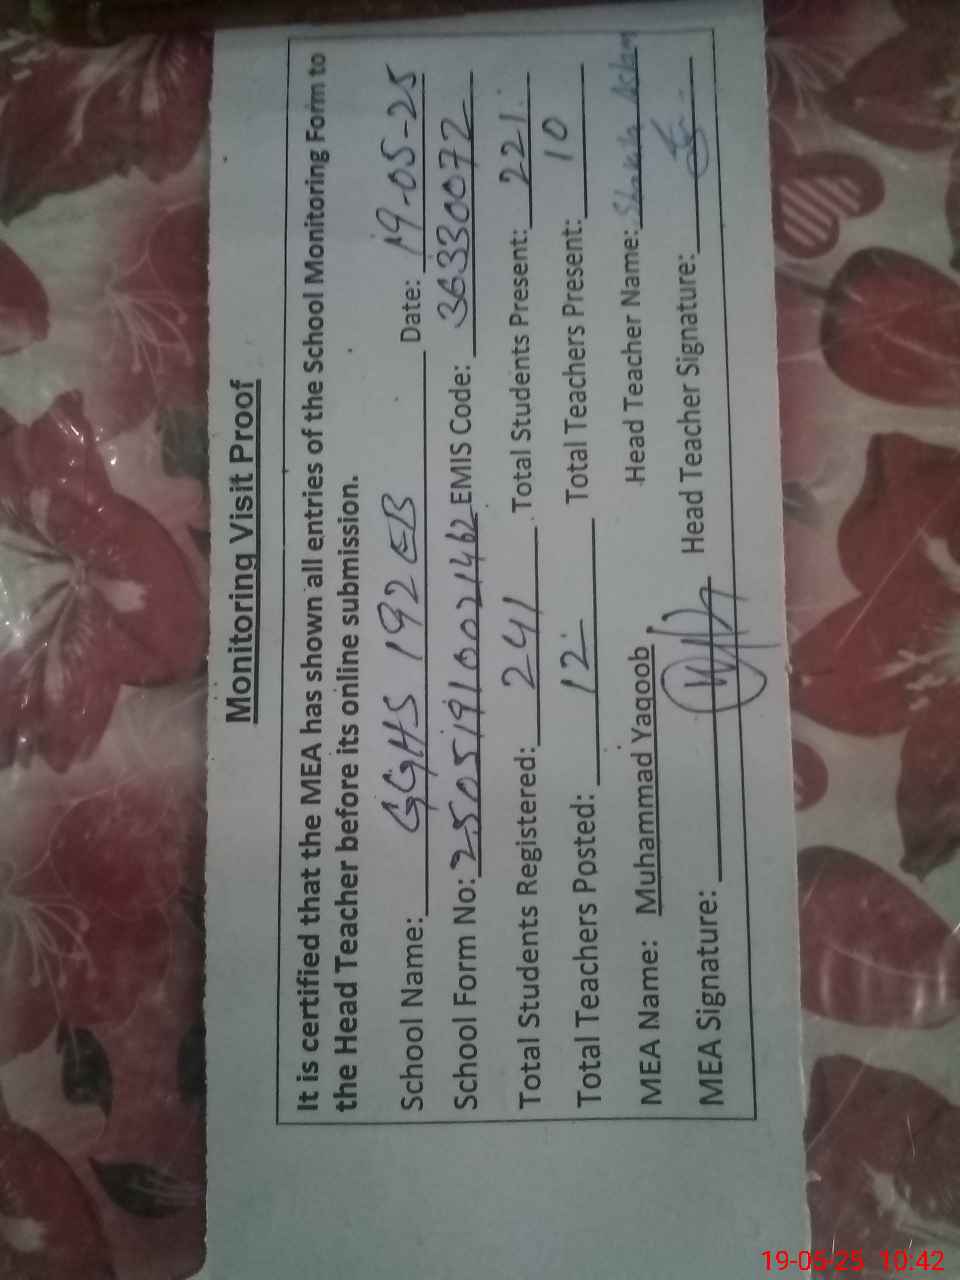 Monitoring Visit Proof
It is certified that the MEA has shown all entries of the School Monitoring Form to
the Head Teacher before its online submission.
School Name: GGHS 192 EB Date: 19-05-25
School Form No: 25051910021462 EMIS Code: 36330072
Total Students Registered: 241 Total Students Present: 221
Total Teachers Posted: 12 Total Teachers Present: 10
MEA Name: Muhammad Yaqoob Head Teacher Name:
MEA Signature: Head Teacher Signature:
19-05-25 10:42